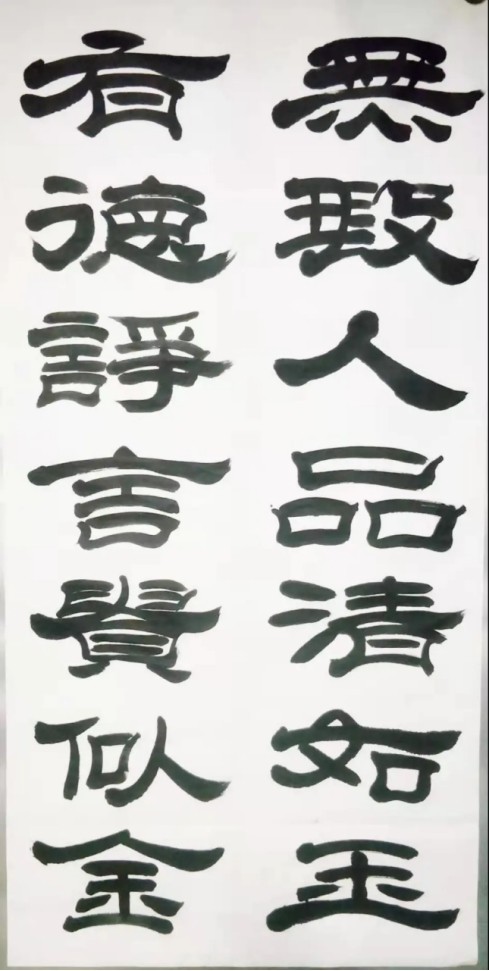 無瑕人品清如玉
有德諍言貴似金